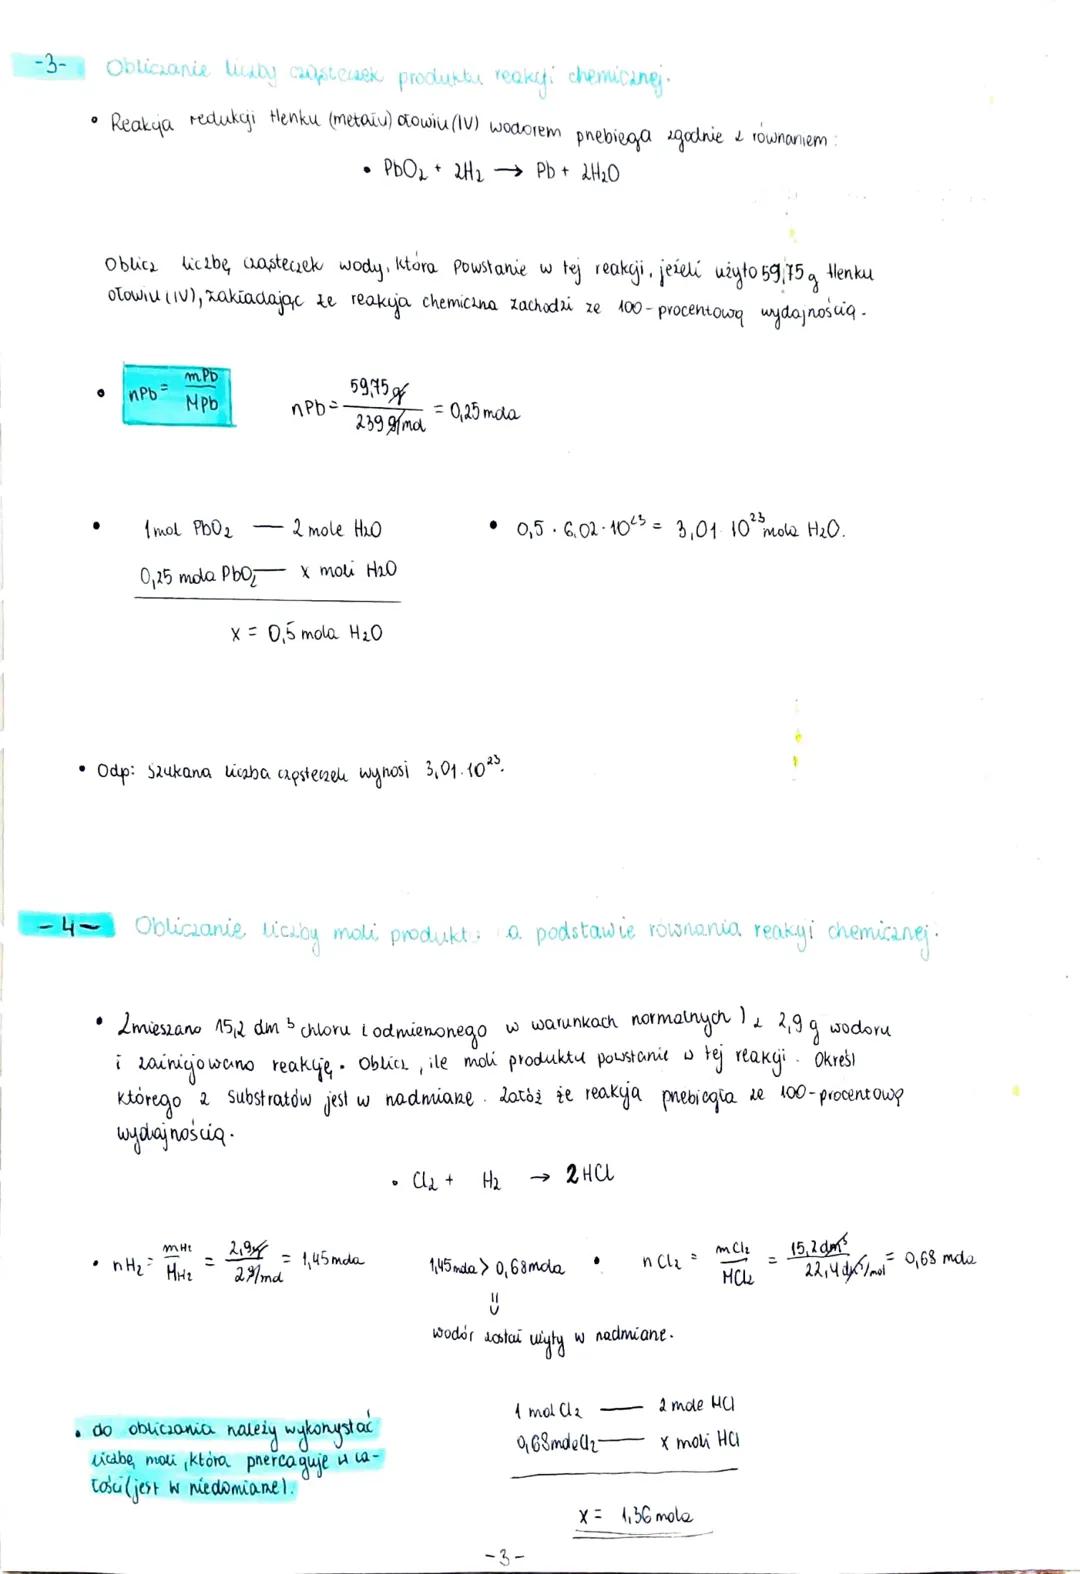 -3- Obliczanie liczby cząsteczek produktu reakcji chemicznej.
• Reakcja redukcji tlenku (metalu) ołowiu (IV) wodorem przebiega zgodnie z równaniem:
• PbO₂ + 2H₂ → Pb + 2H₂O
Oblicz liczbę cząsteczek wody, która powstanie w tej reakcji, jeżeli użyto 59,75 g tlenku
ołowiu (IV), zakładając że reakcja chemiczna zachodzi ze 100-procentową wydajnością.
• nPb = mPb / MPb nPb = 59,75 g / 239 g/mol = 0,25 mola
• 1 mol PbO₂ — 2 mole H₂O • 0,5 · 6,02 · 10²³ = 3,01 · 10²³ mola H₂O.
0,25 mola PbO₂ — x moli H₂O
x = 0,5 mola H₂O
• Odp: Szukana liczba cząsteczek wynosi 3,01 · 10²³.
-4- Obliczanie liczby moli produkt a podstawie równania reakcji chemicznej.
• Zmieszano 15,2 dm³ chloru (odmierzonego w warunkach normalnych) z 2,9 g wodoru
i zainicjowano reakcję. Oblicz, ile moli produktu powstanie w tej reakcji. Określ
którego z substratów jest w nadmiarze. Załóż że reakcja przebiegła ze 100-procentową
wydajnością.
• Cl₂ + H₂ → 2HCl
• nH₂ = mH₂ / MH₂ = 2,9g / 2g/mol = 1,45 mola 1,45 mola > 0,68 mola • nCl₂ = mCl₂ / MCl₂ = 15,2 dm³ / 22,4 dm³/mol = 0,68 mola
wodór został użyty w nadmiarze.
1 mol Cl₂ — 2 mole HCl
• do obliczania należy wykorzystać
0,68 mola Cl₂ — x moli HCl
liczbę moli, która przereaguje w ca-
łości (jest w niedomiarze).
x = 1,36 mola
-3-